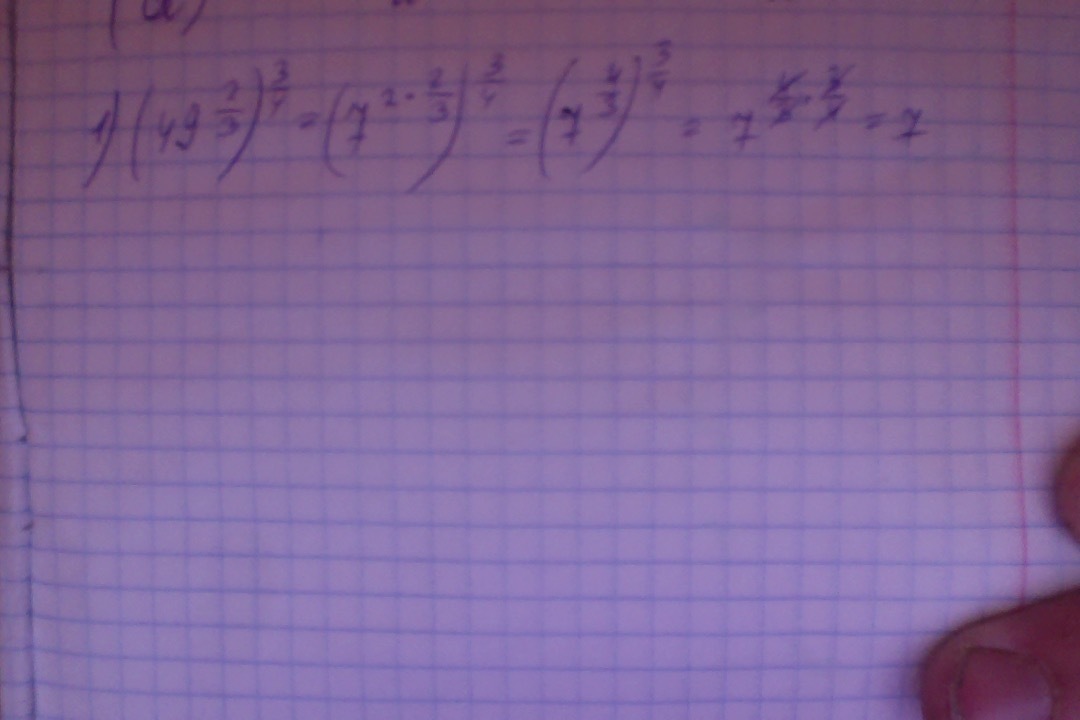 (a)
1) (49^{2/3})^{3/4} = (7^{2·2/3})^{3/4} = (7^{4/3})^{3/4} = 7^{4/3·3/4} = 7